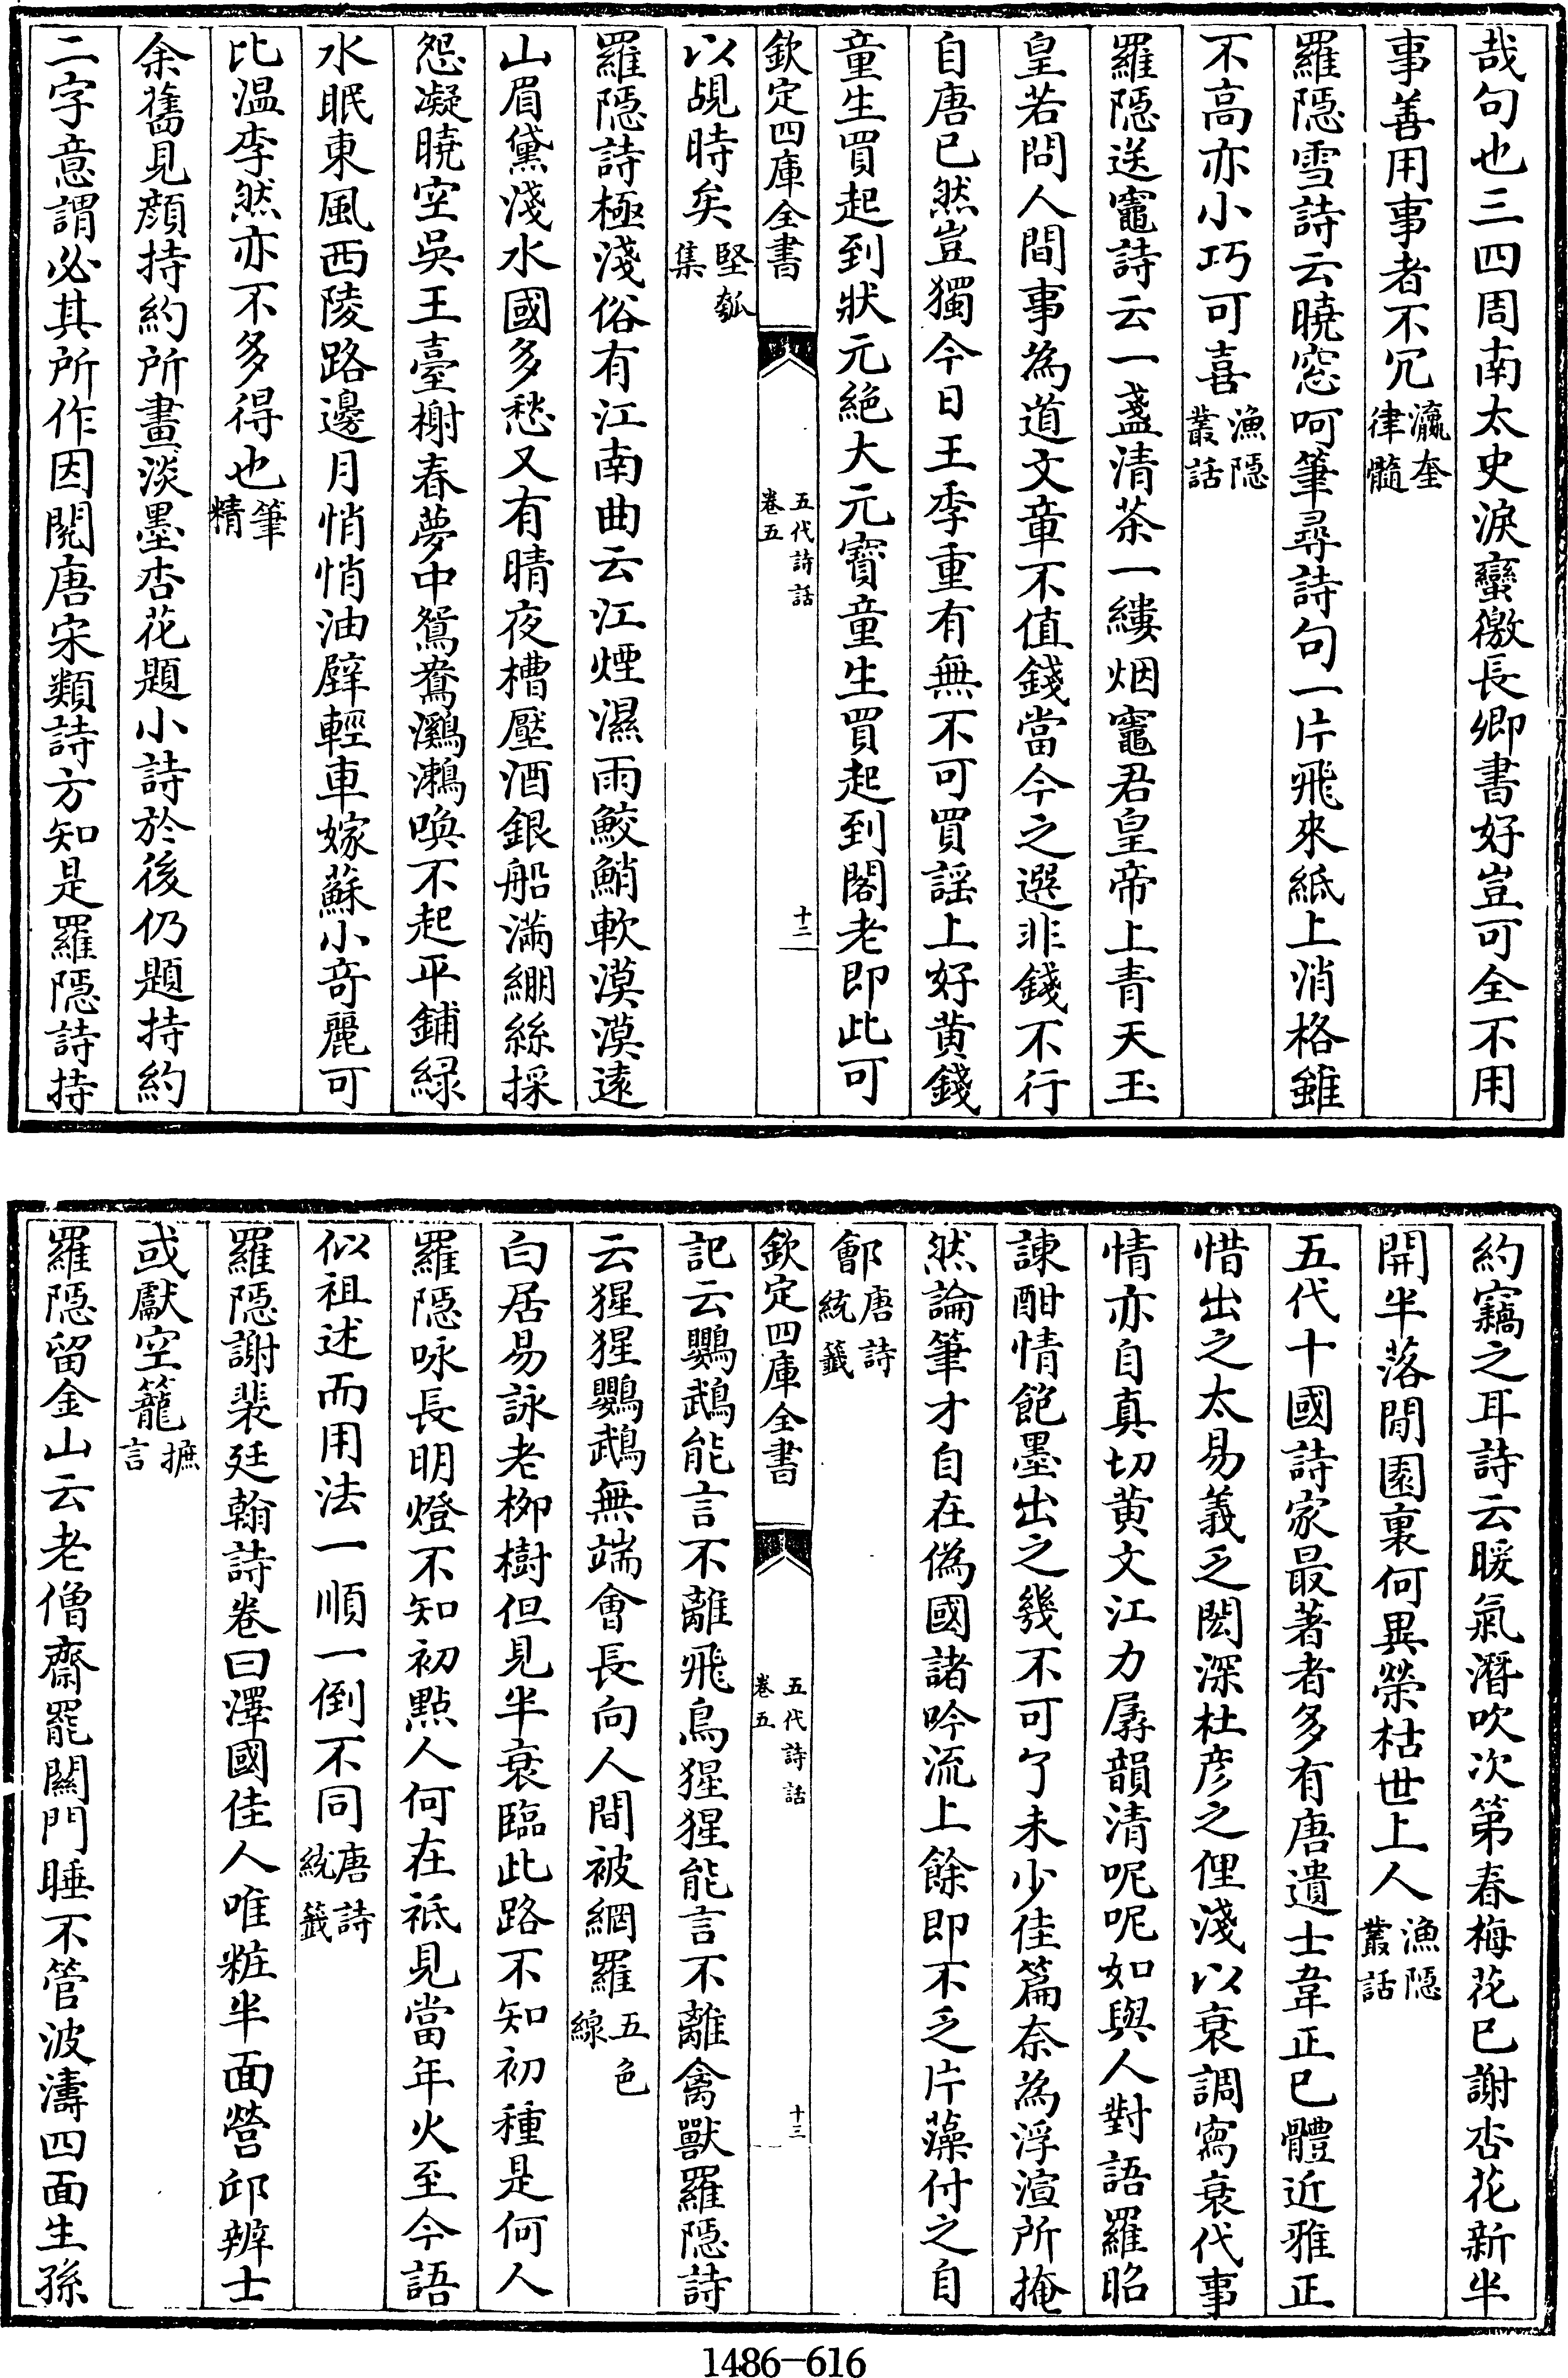 哉句也三四周南太史淚蠻徼長卿書好豈可全不用
事善用事者不冗瀛奎律髓
羅隱雪詩云曉窓呵筆尋詩句一片飛來紙上消格雖
不高亦小巧可喜漁隱叢話
羅隱送竈詩云一盞清茶一縷烟竈君皇帝上青天玉
皇若問人間事為道文章不值錢當今之選非錢不行
自唐已然豈獨今日王季重有無不可買謡上好黄錢
童生買起到狀元絶大元寶童生買起到閣老即此可
欽定四庫全書
五代詩話
卷五
十二
以覘時矣堅瓠集
羅隱詩極淺俗有江南曲云江煙濕雨鮫鮹軟漠漠遠
山眉黛淺水國多愁又有晴夜槽壓酒銀船滿綳絲採
怨凝曉空吳王臺榭春夢中鴛鴦鸂鷘喚不起平鋪緑
水眠東風西陵路邊月悄悄油壁輕車嫁蘇小竒麗可
比温李然亦不多得也筆精
余舊見顔持約所畫淡墨杏花題小詩於後仍題持約
二字意謂必其所作因閱唐宋類詩方知是羅隱詩持
約竊之耳詩云暖氣潛吹次第春梅花已謝杏花新半
開半落閒園裏何異榮枯世上人漁隱叢話
五代十國詩家最著者多有唐遺士韋正已體近雅正
惜出之太易義乏閎深杜彦之俚淺以衰調寫衰代事
情亦自真切黄文江力孱韻清呢呢如與人對語羅昭
諫酣情飽墨出之幾不可了未少佳篇奈為浮渲所掩
然論筆才自在偽國諸吟流上餘即不乏片藻付之自
鄶唐詩統籤
欽定四庫全書
五代詩話
卷五
十三
記云鸚鵡能言不離飛鳥猩猩能言不離禽獸羅隱詩
云猩猩鸚鵡無端會長向人間被網羅五色線
白居易詠老柳樹但見半衰臨此路不知初種是何人
羅隱咏長明燈不知初點人何在祇見當年火至今語
似祖述而用法一順一倒不同唐詩統籤
羅隱謝裴廷翰詩卷曰澤國佳人唯粧半面營邱辨士
或獻空籠摭言
羅隱留金山云老僧齋罷關門睡不管波濤四面生孫
1486-616